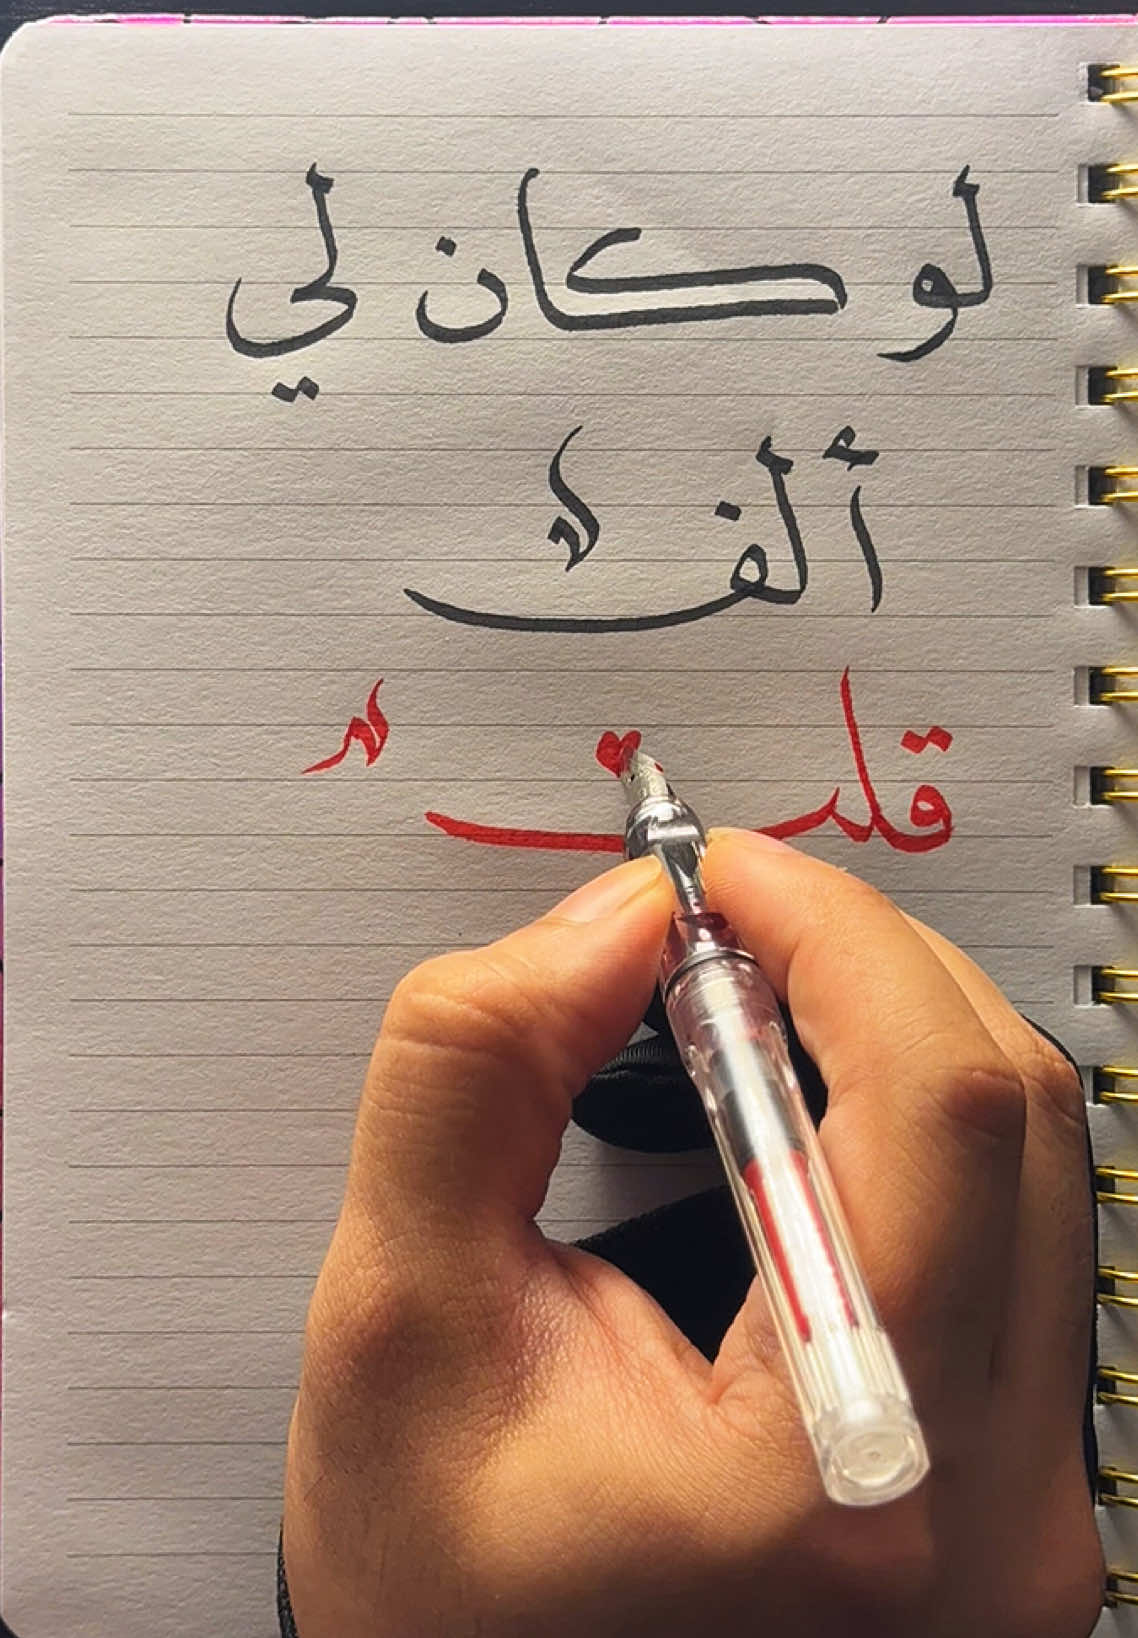 لو كان لي
ألف
قلب